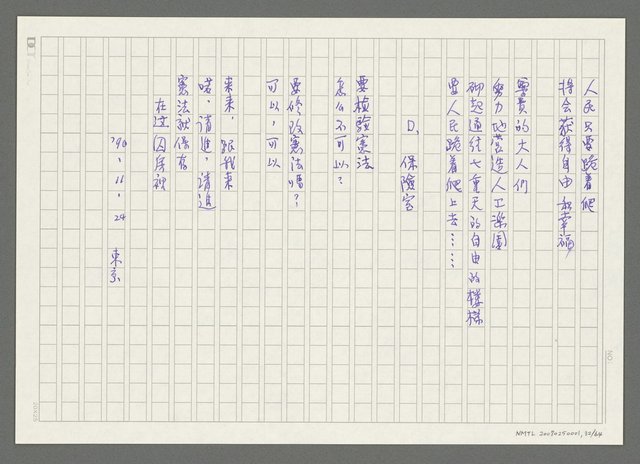 人民只要跪着爬
將会获得自由和幸福
尊貴的大人們
努力地营造人工樂園
砌起通往七重天的自由的樓梯
要人民跪着爬上去……
D. 保險室
要檢驗憲法
怎么不可以？
要修改憲法嗎？
可以，可以
来来，跟我来
喏，请進，请進
憲法就保存
在这囚房裡
'90、11、24 東京
NO:
20×25
NMTL 20090250001, 32/64